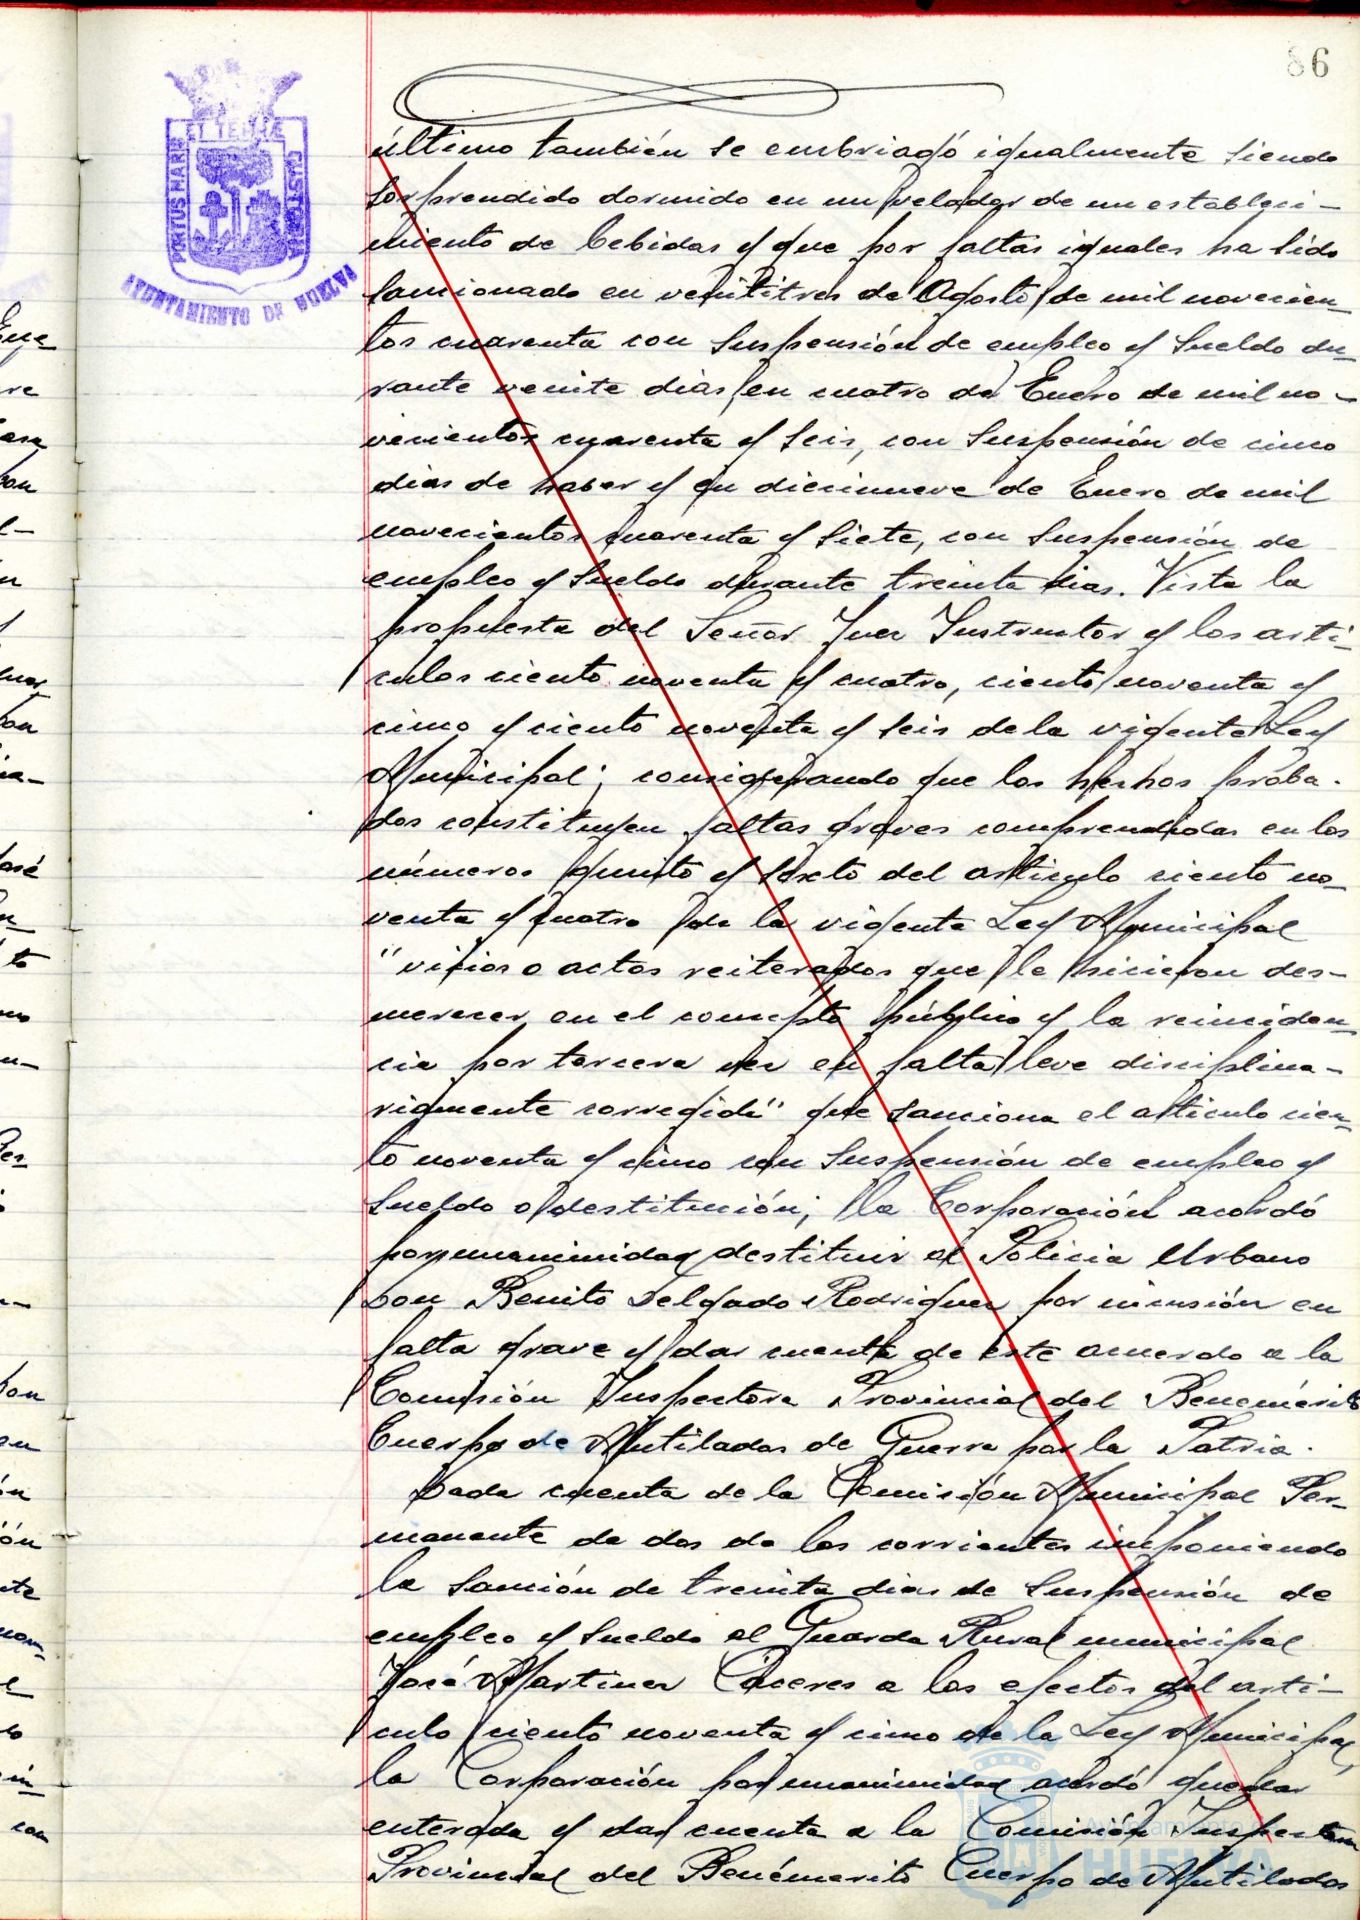 86
PORTUS MARIS ET TERRÆ CUSTODIA
AYUNTAMIENTO DE HUELVA
último también se embriagó igualmente siendo
sorprendido dormido en un velador de un estableci-
miento de bebidas y que por faltas iguales ha sido
sancionado en veintitres de Agosto de mil novecien-
tos cuarenta con suspensión de empleo y sueldo du-
rante veinte dias, en cuatro de Enero de mil no-
vecientos cuarenta y seis, con suspensión de cinco
dias de haber y en diecinueve de Enero de mil
novecientos cuarenta y siete, con suspensión de
empleo y sueldo durante treinta dias. Vista la
propuesta del Señor Juez Instructor y los arti-
culos ciento noventa y cuatro, ciento noventa y
cinco y ciento noventa y seis de la vigente Ley
Municipal; considerando que los hechos proba-
dos constituyen faltas graves comprendidas en los
números quinto y sexto del articulo ciento no-
venta y cuatro de la vigente Ley Municipal
"vicios o actos reiterados que le hicieron des-
merecer en el concepto público y la reinciden-
cia por tercera vez en falta leve disciplina-
riamente corregida" que sanciona el articulo cien-
to noventa y cinco con suspensión de empleo y
sueldo o destitución; la Corporación acordó
por unanimidad destituir al Policia Urbano
Don Benito Delgado Rodriguez por incusión en
falta grave y dar cuenta de este acuerdo a la
Comisión Inspectora Provincial del Benemérito
Cuerpo de Mutilados de Guerra por la Patria.
Dada cuenta de la Comisión Municipal Per-
manente de dos de los corrientes imponiendo
la sanción de treinta dias de suspensión de
empleo y sueldo al Guarda Rural municipal
José Martinez Cáceres a los efectos del arti-
culo ciento noventa y cinco de la Ley Municipal,
la Corporación por unanimidad acordó quedar
enterada y dar cuenta a la Comisión Inspectora
Provincial del Benémerito Cuerpo de Mutilados
Ayuntamiento de
HUELVA